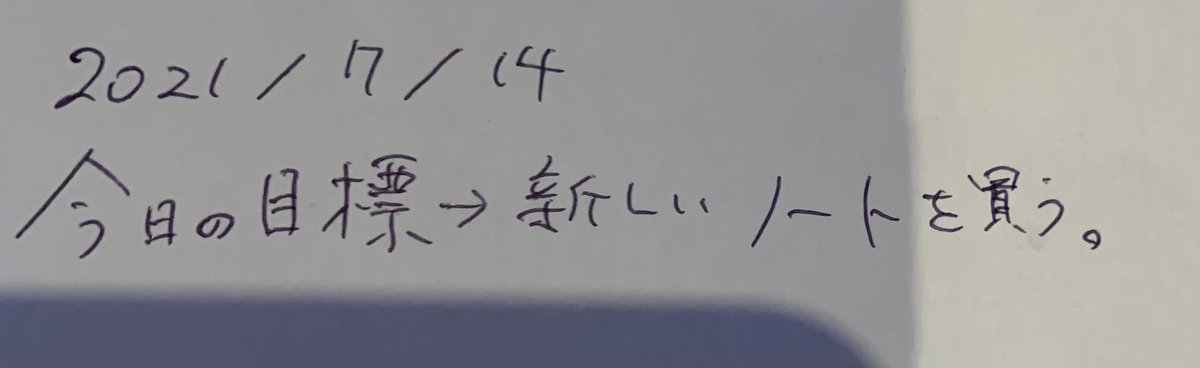 2021/7/14
今日の目標→新しいノートを買う。